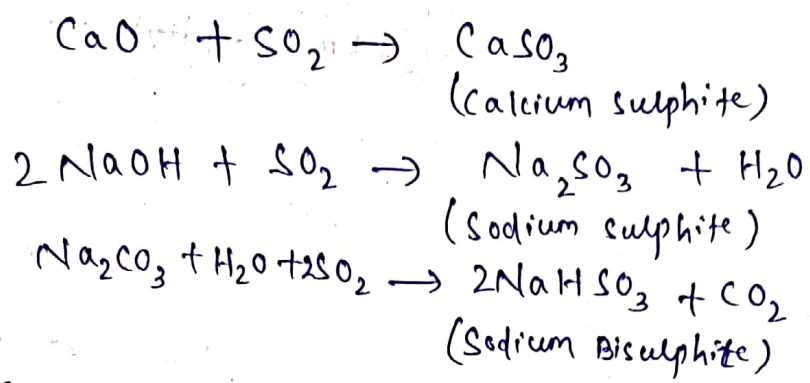 CaO + SO₂ → CaSO₃
(Calcium sulphite)
2 NaOH + SO₂ → Na₂SO₃ + H₂O
(Sodium sulphite)
Na₂CO₃ + H₂O + 2SO₂ → 2NaHSO₃ + CO₂
(Sodium Bisulphite)